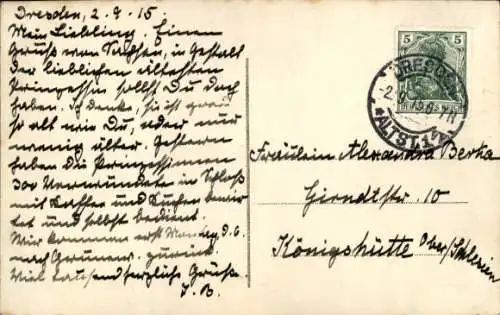 Dresden, 2.9.15.
Mein Liebling. Einen
Gruß von Sachsen, in Gestalt
der lieblichen ältesten
Prinzessin sollst Du doch
haben. Ich denke, sie ist genau
so alt wie Du, oder nur
wenig älter. Gestern
haben die Prinzessinnen
300 Verwundete im Schloß
mit Kaffee und Kuchen bewir-
tet und selbst bedient.
Wir kommen erst Montag, d. 6.
nach zurück.
Viel tausend herzliche Grüße.
J. B.
5 5
DRESDEN
-2.9.15.6-7N
*ALTST. 1*
Fräulein Alexandra Berka
Girndtstr. 10
Königshütte Ober/Schlesien